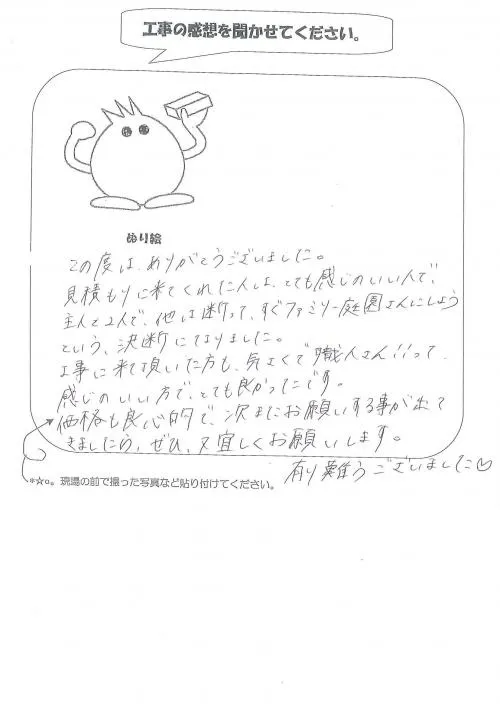 工事の感想を聞かせてください。
ぬり絵
この度は、ありがとうございました。
見積もりに来てくれた人は、とても感じのいい人で、
主人と2人で、他は断って、すぐファミリー庭園さんにしよう
という、決断にてりました。
工事に来て頂いた方も、気さくで職人さん!!って
感じのいい方で、とても良かったです。
価格も良心的で、次またお願いする事が出て
きましたら、ぜひ、又宜しくお願いします。
有り難うございました♡
*☆○。現場の前で撮った写真など貼り付けてください。